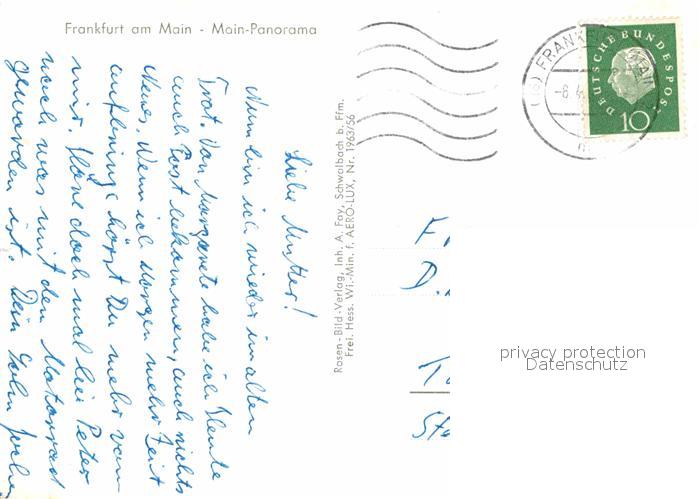 Frankfurt am Main - Main-Panorama
Liebe Mutter!
Nun bin ich wieder im alten
Trot. Von Margarete habe ich Heute
auch Post bekommen, auch nichts
Neues. Wenn ich Morgen mehr Zeit
hörst Du mehr von
mir. Höre doch mal bei Peter
nach was mit dem Motorrad
geworden ist. Dein Sohn
Rosen-Bild-Verlag, Inh. A. Fay, Schwalbach b. Ffm.
Frei. Hess. Wi.-Min. f. AERO-LUX, Nr. 1963/56
FRANKF MAIN
-8.
DEUTSCHE BUNDESPOST
10
F
D.
K
St
privacy protection
Datenschutz